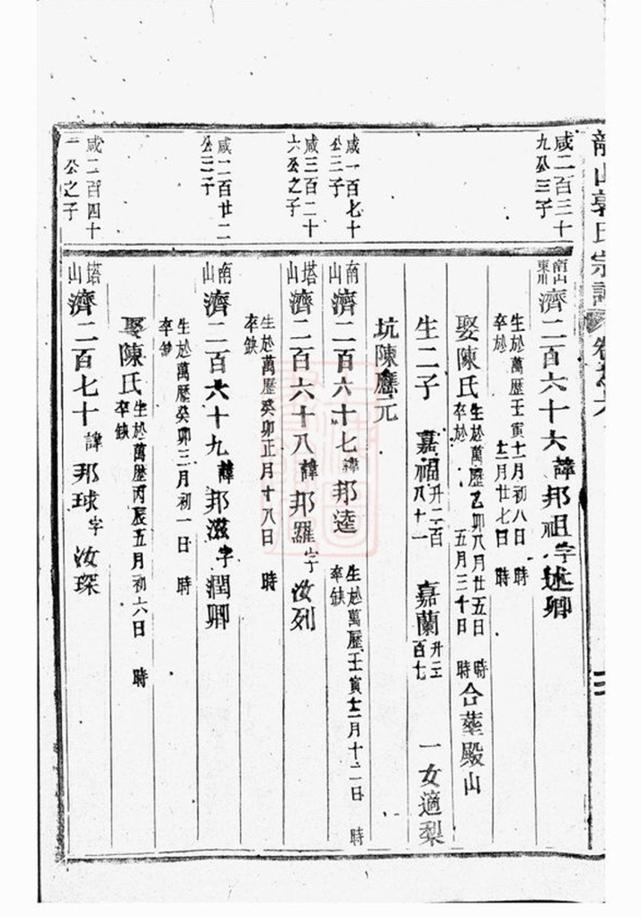 龍山郭氏宗譜 卷之六
咸二百三十
九公三子
南山
東川
濟二百六十六 諱邦祖 字述卿
生於萬歷壬寅十一月初八日 時
卒於 十二月廿七日 時
娶陳氏 生於萬歷乙卯八月廿五日 時
卒於 五月三十日 時 合葬殿山
生二子 嘉福 升二百八十一 嘉蘭 升二百七 一女適梨
坑陳應元
咸一百七十
公三子
南山 濟二百六十七 諱邦逵 生於萬歷壬寅十二月十二日 時
卒缺
咸三百二十
六公之子
塔山 濟二百六十八 諱邦羅 字汝列
生於萬歷癸卯正月十八日 時
卒缺
咸二百廿二
公三子
南山 濟二百六十九 諱邦滋 字潤卿
生於萬歷癸卯三月初一日 時
卒缺
娶陳氏 生於萬歷丙辰五月初六日 時
卒缺
咸二百四十
一公之子
塔山 濟二百七十 諱邦球 字汝琛